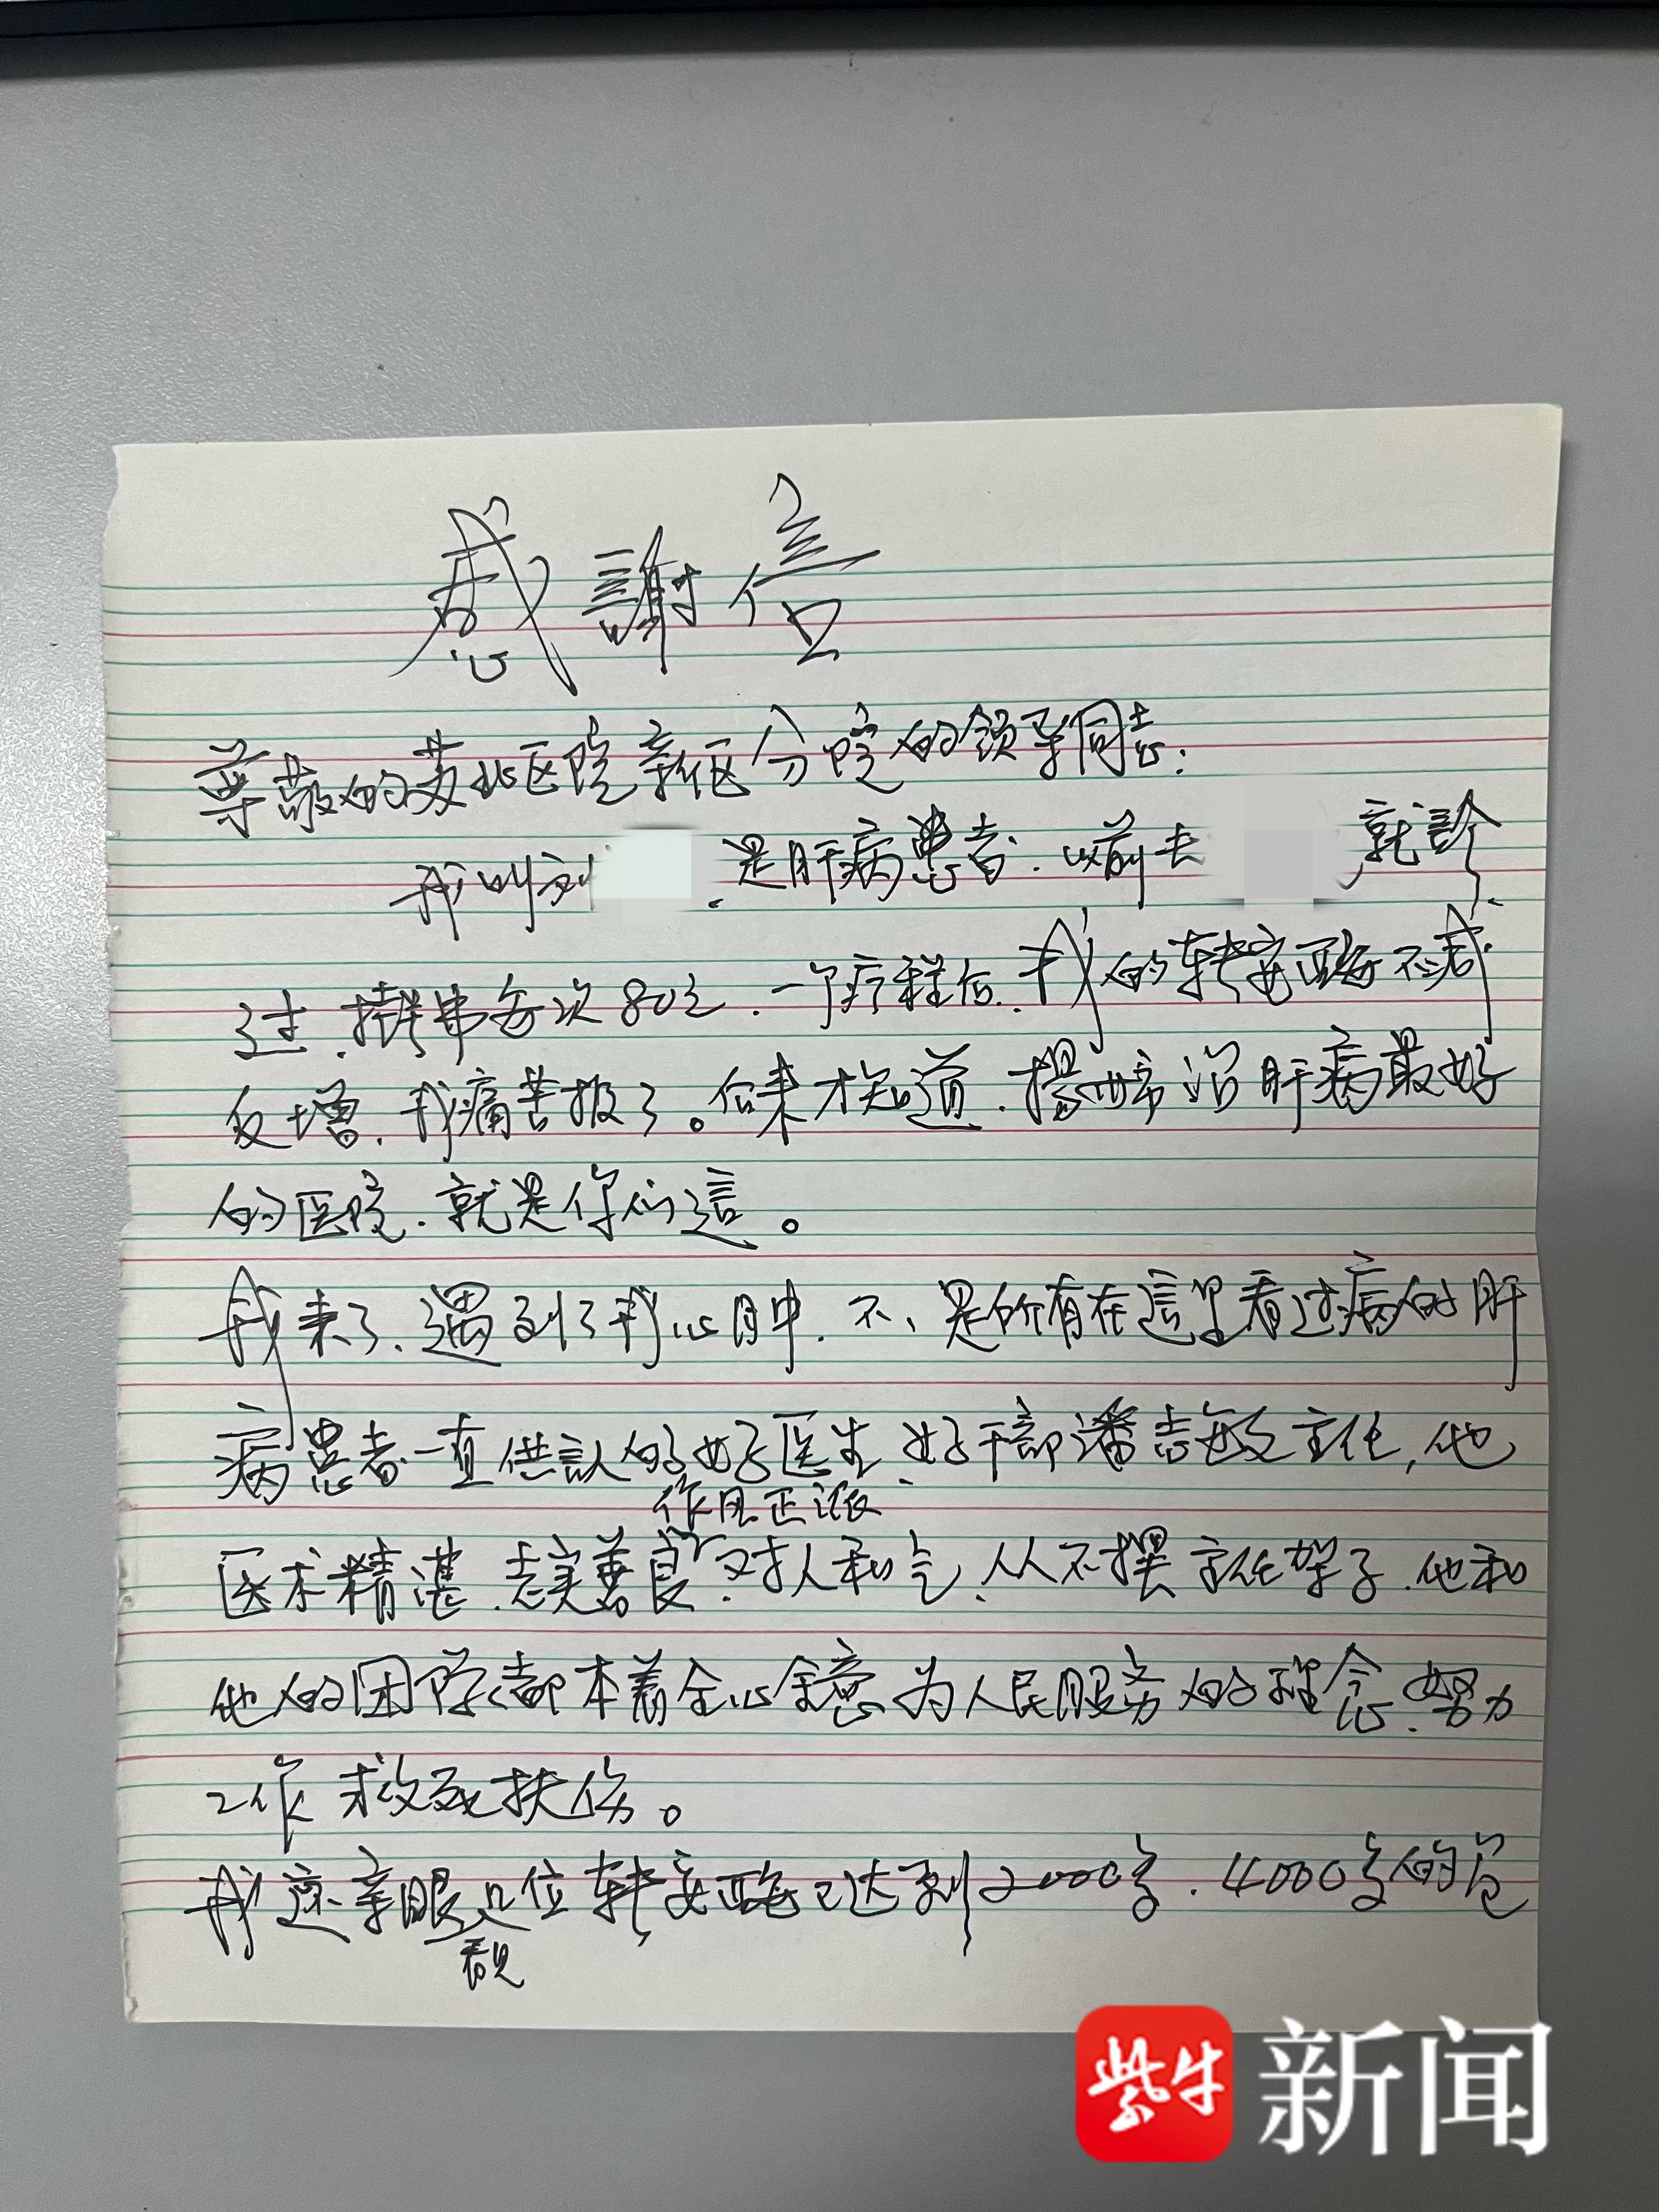 感謝信
尊敬的苏北医院新区分院的领导同志:
我叫刘 .是肝病患者.以前去 就診
过.掛弗每次80元.一个疗程后.我的转安酶不减
反增.我痛苦极了。后来才知道.揚州市治肝病最好
的医院.就是你们這。
我来了.遇到了我心目中.不、是所有在這里看过病的肝
病患者一直供認的好医生、好干部潘志敏主任,他
作风正派
医术精湛.忠实善良.对人和气.从不摆主任架子.他和
他的团队都本着全心全意为人民服务的理念.努力
工作救死扶伤。
我還亲眼 几位转安酶已达到2000多.4000多的
看見
紫牛 新闻